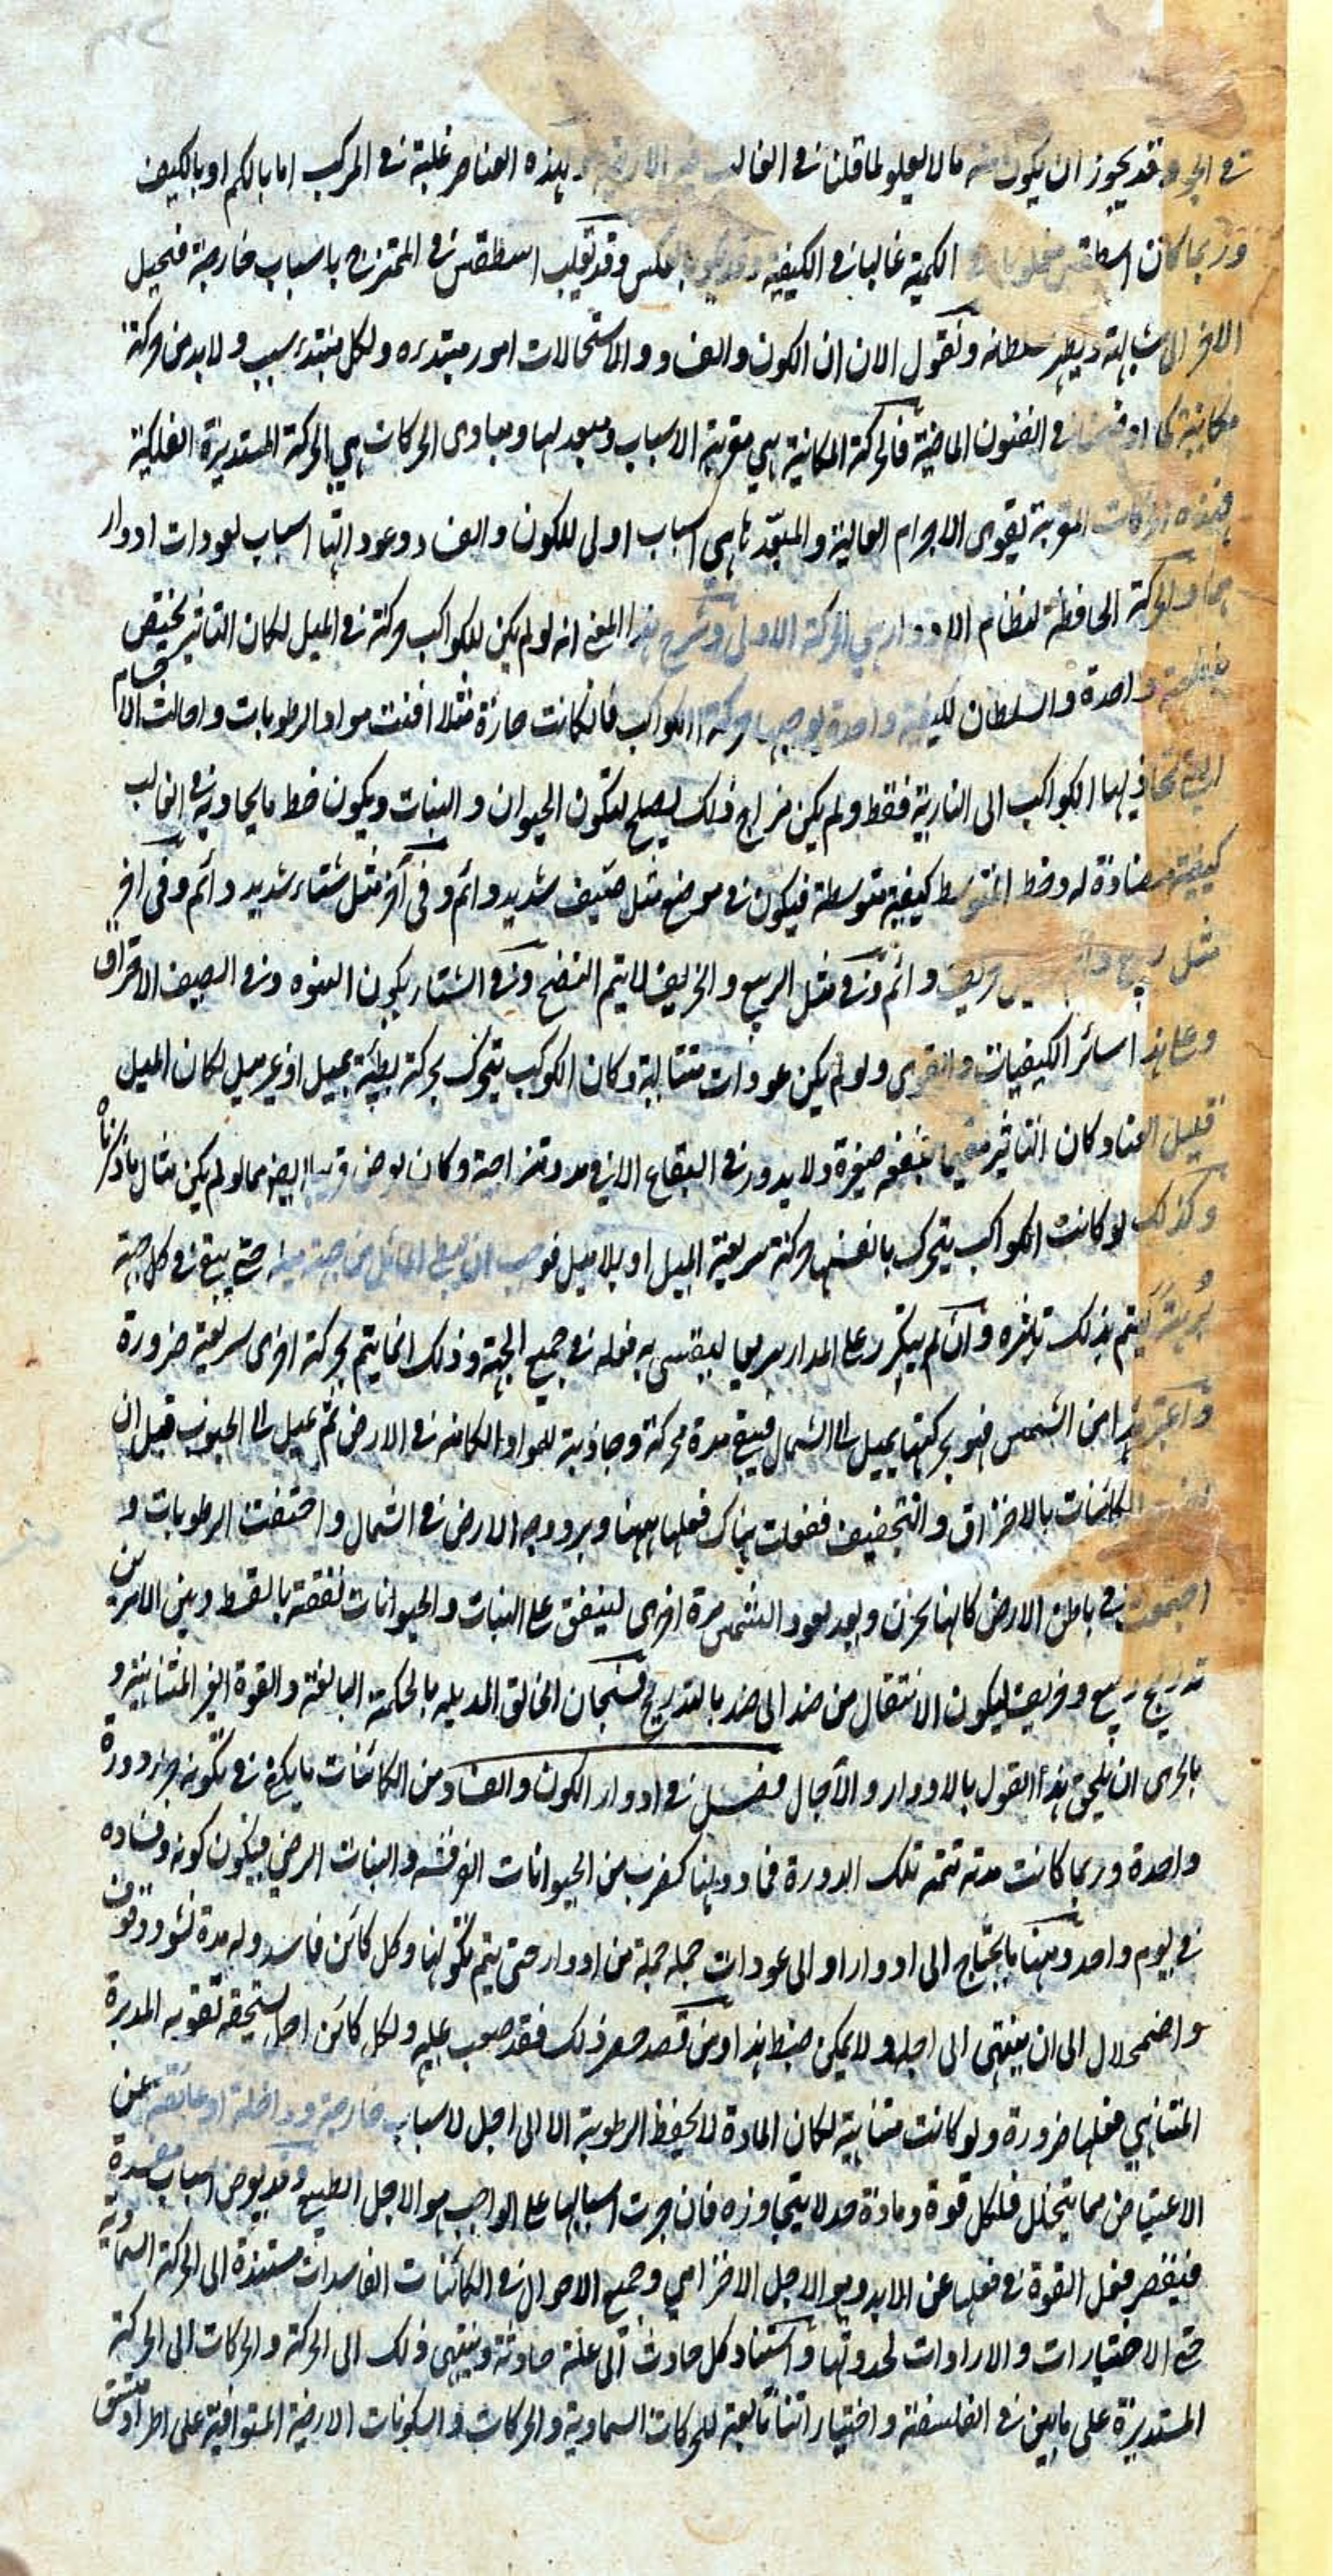 في الجو وقد يجوز ان يكون منه ما لا يعلو لما قلنا في الغالب ولهذه العناصر غلبة في المركب اما بالكم او بالكيف
وربما كان اسطقس مغلوبا في الكمية غالبا في الكيفية وقد يكون بالعكس وقد تغلب اسطقس في الممتزج باسباب خارجة فتحيل
الاخر الى مشابهته ويظهر سلطانه ونقول الان ان الكون والفساد والاستحالات امور مبتدءه ولكل مبتدء سبب ولا بد من حركة
مكانية كما اوضحنا في الفنون الماضية فالحركة المكانية هي مقربة الاسباب ومبعدلها ومبادى الحركات هي الحركة المستديرة الفلكية
فهذه الحركات المقربة لقوى الاجرام العالية والمبعّدة هى اسباب اولى للكون والفساد وعوداتها اسباب لعودات ادوار
والحركة الحافظة لنظام الادوار هي الحركة الاولى وشرح هذا المعنى انه لو لم يكن للكواكب حركة في الميل لكان التاثير يختص
ببقعة واحدة والسلطان لكيفية واحدة يوجبها حركة الكواكب فان كانت حارة مثلا افنت مواد الرطوبات واحالت الاجسام
التي تحاذيها الكواكب الى النارية فقط ولم يكن مزاج فلك يصلح لتكون الحيوان والنبات ويكون خط ما يحاديه في الغالب
كيفية مضادة له وخط المتوسط كيفية متوسطة فيكون في موضع مثل صيف شديد دائم وفى آخر مثل شتاء شديد دائم وفى آخر
مثل ربيع دائم خريف دائم وفي مثل الربيع والخريف لا يتم النضج وفي الشتاء يكون النيوه وفي الصيف الاحتراق
وعلى هذا سائر الكيفيات والقوى ولو لم يكن عودات متتالية وكان الكوكب يتحرك بحركة بطيئة بميل او غير ميل لكان الميل
قليل الغناء وكان التاثير مقيما ببقعه صغيرة ولا يدور في البقاع الا في مدد متراخية وكان يعرض قريبا ايضا مما لو لم يكن مثال ما ذكرناه
وكذلك لو كانت الكواكب يتحرك بانفسها حركة سريعة الميل او بلا ميل فوجب ان يبقى المائل من جهة ميله حتى يبقى في كل جهة
بُرهةً ليتم بذلك تاثيره وان لم يتكرر على المدار سريعا ليفشى به فعله في جميع الجهة وذلك انما يتم بحركة اخرى سريعة ضرورة
واعتبر هذا من الشمس فهو بحركتها يميل الى الشمال فيبقى مدة محركة وجاذبة للمواد الكائنه في الارض ثم يميل الى الجنوب قبل ان
الكائنات بالاحراق والتجفيف ففعلت هناك فعلها ههنا وبرد وجه الارض في الشمال واحتقنت الرطوبات و
اجتمعت في باطن الارض كانها تخزن وبعد بعود الشمس مرة اخرى لينفق على النبات والحيوانات نفقة بالقسط وبين الامرين
تدريج ربيع وخريف ليكون الانتقال من ضد الى ضد بالتدريج فسبحان الخالق المدبر له بالحكمة البالغة والقوة الغير المتناهية و
بالحرى ان نلحق بهذا القول بالادوار والآجال فصل في ادوار الكون والفساد ومن الكائنات ما يكفى في تكونه جزء دورة
واحدة وربما كانت مدته تتمه تلك الدورة فما دونها كضرب من الحيوانات القرقشه والنبات الرضي فيكون كونه وفساده
في يوم واحد ومنها ما يحتاج الى ادوار او الى عودات جملة جملة من ادوار حتى يتم تكونها وكل كائن فاسد وله مدة نشو ووقوف
واضمحلال الى ان ينتهى الى اجله ولا يمكن ضبط هذا ومن قصد حصر ذلك فقد صعب عليه ولكل كائن اجل يستحقه تقويه المدبرة
المتناهي فعلها ضرورة ولو كانت متناهية لكان المادة لا يحفظ الرطوبة الا الى اجل لاسباب خارجة وداخلة او عائقة عن
الاعتياض مما يتحلل فلكل قوة ومادة حد لا يتجاوزه فان جرت اسبابها على الواجب هو الاجل الطبيعي وقد يعرض اسباب مفسدة
فيقصر فعل القوة في فعلها عن الابد وهو الاجل الاخترامي وجميع الاحوال في الكائنات الفاسدات مستندة الى الحركة السماوية
حتى الاختيارات والارادات لحدوثها واستناد كل حادث الى علة حادثة وينتهى ذلك الى الحركة والحركات الى الحركة
المستديرة على ما بين في الفلسفة واختياراتنا تابعة للحركات السماوية والحركات والسكونات الارضية المتوافية على اطراد متسق